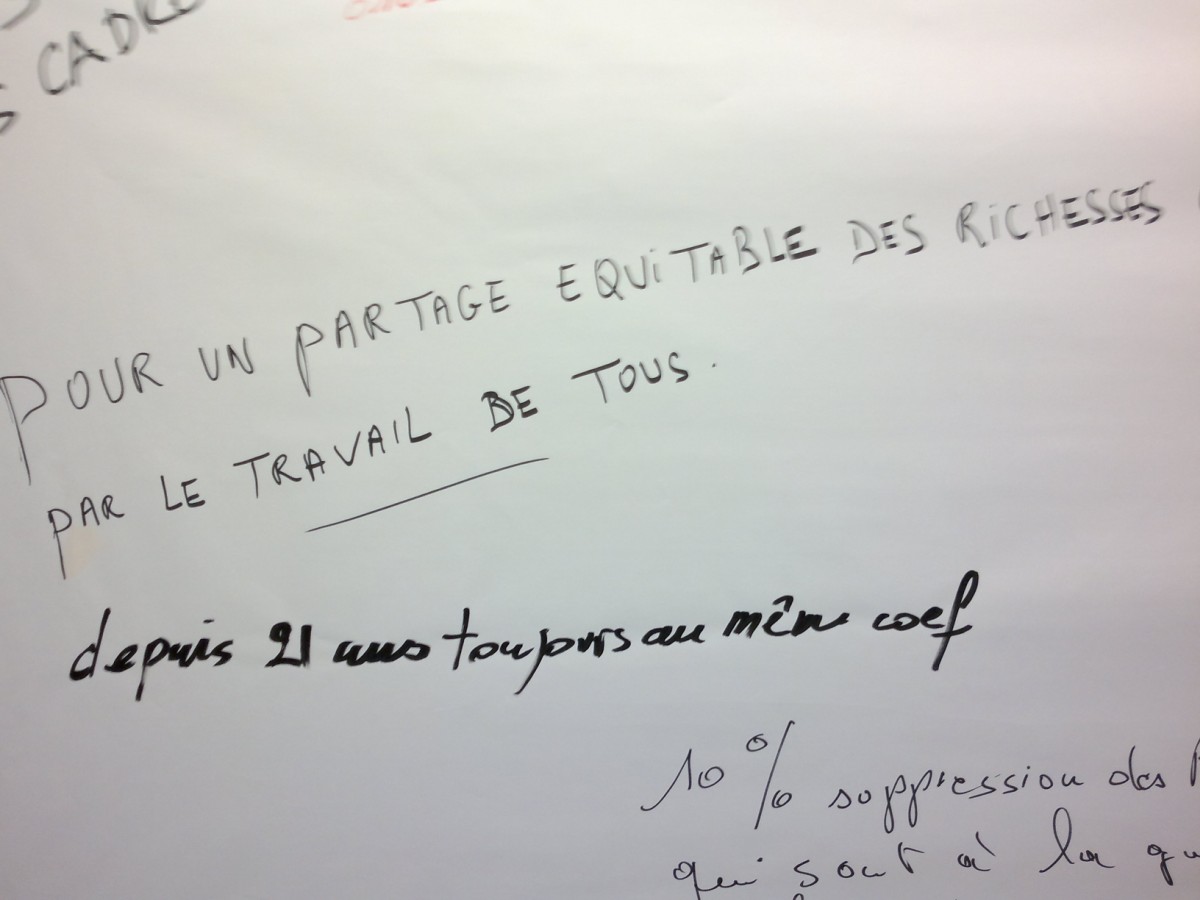 CADRE
POUR UN PARTAGE EQUITABLE DES RICHESSES
PAR LE TRAVAIL DE TOUS.
depuis 21 ans toujours au même coef
10 % suppression des
qui sont à la